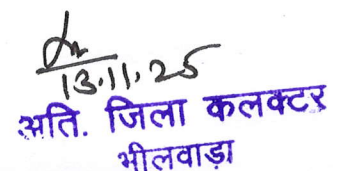 13.11.25
अति. जिला कलक्टर
भीलवाड़ा